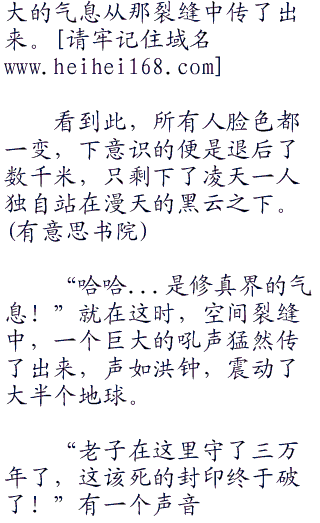 大的气息从那裂缝中传了出
来。[请牢记住域名
www.heihei168.com]
看到此，所有人脸色都
一变，下意识的便是退后了
数千米，只剩下了凌天一人
独自站在漫天的黑云之下。
(有意思书院)
“哈哈...是修真界的气
息！”就在这时，空间裂缝
中，一个巨大的吼声猛然传
了出来，声如洪钟，震动了
大半个地球。
“老子在这里守了三万
年了，这该死的封印终于破
了！”有一个声音